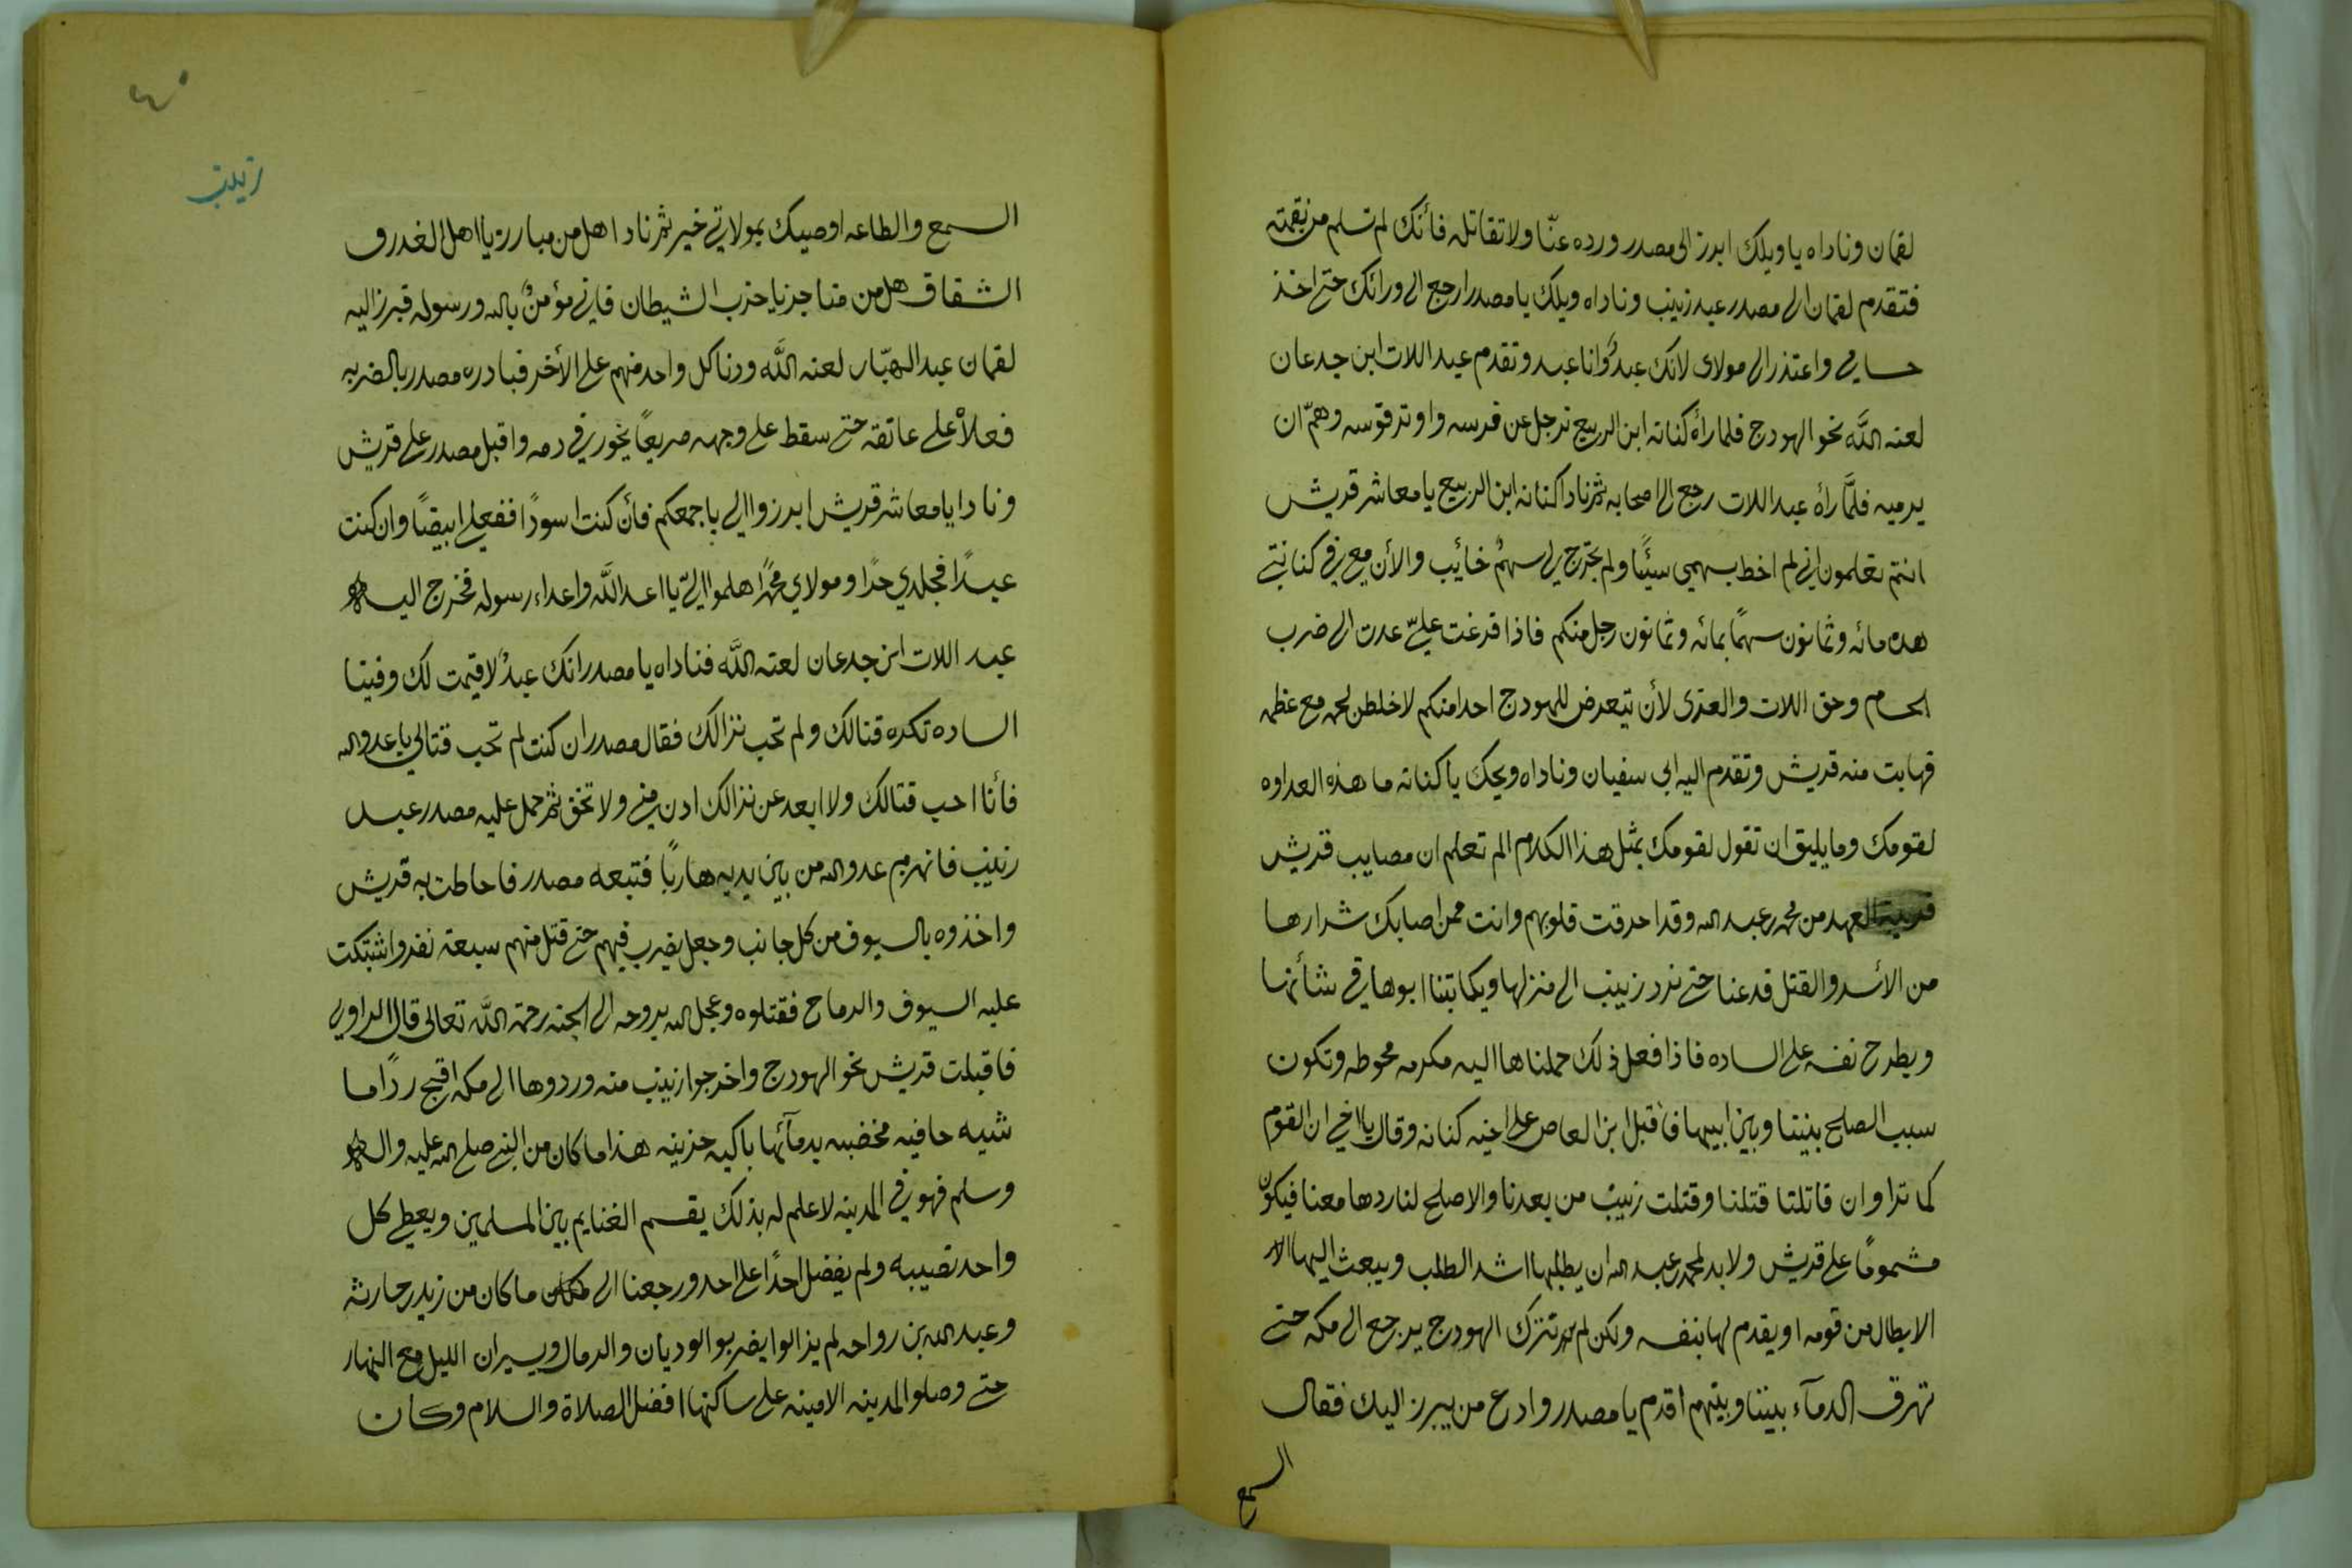 لقمان وناداه يا ويلك ابرز الى مصدر ورده عنّا ولا تقاتله فأنك لم تسلم من نقمته
فتقدم لقمان الى مصدر عبد زينب وناداه ويلك يا مصدر ارجع الى ورائك حتى اخذ
حسامي واعتذر الى مولاى لانك عبدٌ وانا عبد وتقدم عبد اللات ابن جدعان
لعنه اللَّه نحو الهودج فلما رأه كنانه ابن الربيع ترجل عن فرسه واوتر قوسه وهمّ ان
يرميه فلمَّا رأه عبد اللات رجع الى اصحابه ثم نادا كنانه ابن الربيع يا معاشر قريش
انتم تعلمون انى لم اخط بسهمى سيئًا ولم يخرج لى سهمٌ خائب والأن معى في كنانتى
هذه مائه وثمانون سهمًا بمائه وثمانون رجل منكم فاذا فرغت علىّ عدت الى ضرب
الحسام وحق اللات والعزى لأن تيعرض للهودج احد امنكم لاخلطن لحمه مع عظمه
فهابت منه قريش وتقدم اليه ابى سفيان وناداه ويحك يا كنانه ما هذه العداوه
لقومك وما يليق ان تقول لقومك بمثل هذا الكلام الم تعلم ان مصايب قريش
قريبة العهد من محمد بن عبد الله وقد احرقت قلوبهم وانت ممن اصابك شرارها
من الأسر والقتل فدعنا حتى نرد زينب الى منزلها ويكاتبنا ابوها في شأنها
ويطرح نفسه على الساده فاذا فعل ذلك حملناها اليه مكرمه محوطه وتكون
سبب الصلح بيننا وبين ابيها فأقبل ابن العاص على اخيه كنانه وقال يا اخى ان القوم
كما ترا وان قاتلتا قتلنا وقتلت زينب من بعدنا والاصلح لنا ردها معنا فيكون
مشمومًا على قريش ولابد لمحمد بن عبد الله ان يطلبها اشد الطلب ويبعث اليها الا
الابطال من قومه او يقدم لها بنفسه ولكن لم تترك الهودج يرجع الى مكه حتى
تهرق الدمآء بيننا وبينهم اقدم يا مصدر وادع من يبرز اليك فقال
السمع
٤٠
زينب
السمع والطاعه اوصيك بمولاتي خير ثم نادا هل من مبارز يا اهل الغدر و
الشقاق هل من مناجز يا حزب الشيطان فاني مؤمنٌ بالله ورسوله فبرز اليه
لقمان عبد الهبّار لعنه اللَّه ودنا كل واحد منهم على الأخر فبادره مصدر بالضربه
فعلاْ على عاتقه حتى سقط على وجهه صريعًا يخور في دمه واقبل مصدر على قريش
ونادا يا معاشر قريش ابرزوا الى باجمعكم فأن كنت اسودًا ففعلى ابيضًا وان كنت
عبدًا فجلدي حرًا ومولاي محمدًا هلموا اليّ يا اعد اللَّه واعداء رسوله فخرج اليه
عبد اللات ابن جدعان لعنه اللَّه فناداه يا مصدر انك عبدٌ لا قيمت لك وفينا
الساده تكره قتالك ولم تحب نزالك فقال مصدر ان كنت لم تحب قتالى يا عدو الله
فأنا احب قتالك ولا ابعد عن نزالك ادن منى ولا تخف ثم حمل عليه مصدر عبد
زينب فانهزم عدو الله من بين يديه هاربًا فتبعه مصدر فاحاطت به قريش
واخذوه بالسيوف من كل جانب وجعل يضرب فيهم حتى قتل منهم سبعة نفر واشتبكت
عليه السيوف والرماح فقتلوه وعجل الله بروحه الى الجنه رحمة اللَّه تعالى قال الراوي
فاقبلت قريش نحو الهودج واخرجوا زينب منه وردوها الى مكه اقبح ردًا ما
شيه حافيه مخضبه بدمآئها باكيه حزينه هذا ما كان من النبي صلى الله عليه واله
وسلم فهو في المدينه لا علم له بذلك يقسم الغنايم بين المسلمين ويعطى كل
واحد نصيبه ولم يفضل احدًا على احد ورجعنا الى ما كان من زيد بن حارثه
وعبد الله بن رواحه لم يزالوا يضربو الوديان والرمال ويسيران الليل مع النهار
حتى وصلو المدينه الامينه على ساكنها افضل الصلاة والسلام وكان